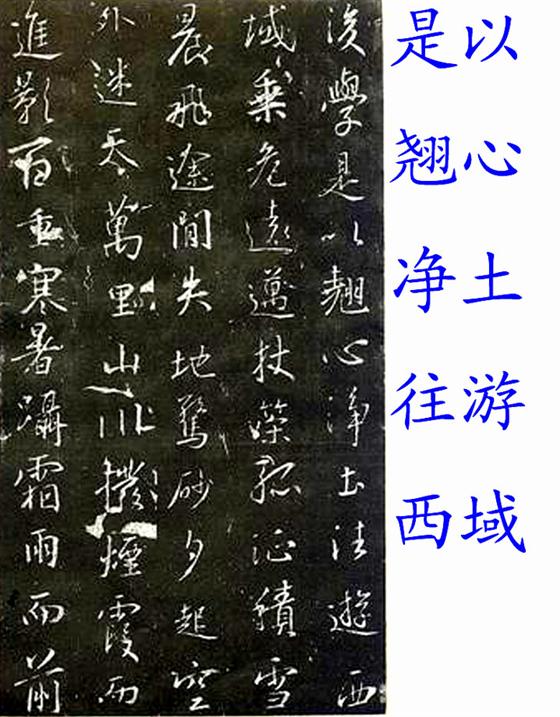 是以
翘心
净土
往游
西域
後學是以翹心淨土法遊西
域乘危遠邁杖策孤征積雪
晨飛途間失地驚砂夕起空
外迷天萬里山川撥煙霞而
進影百重寒暑躡霜雨而前